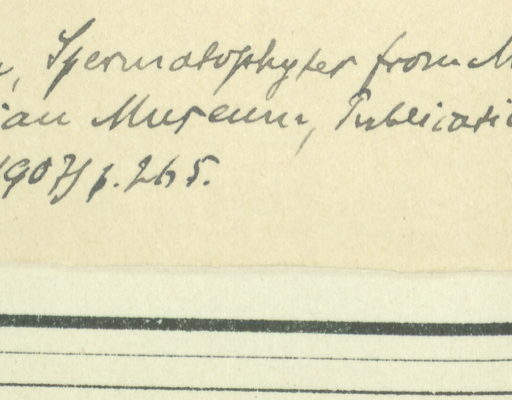 , Spermatophytes from M
ian Museum, Publicati
1907) p. 265.